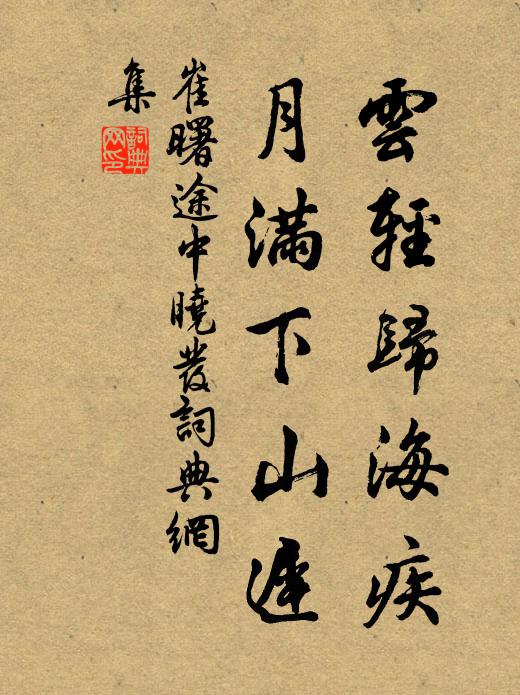 雲輕歸海疾
月滿下山遲
崔曙途中曉發詞典網
集
詞典
网印